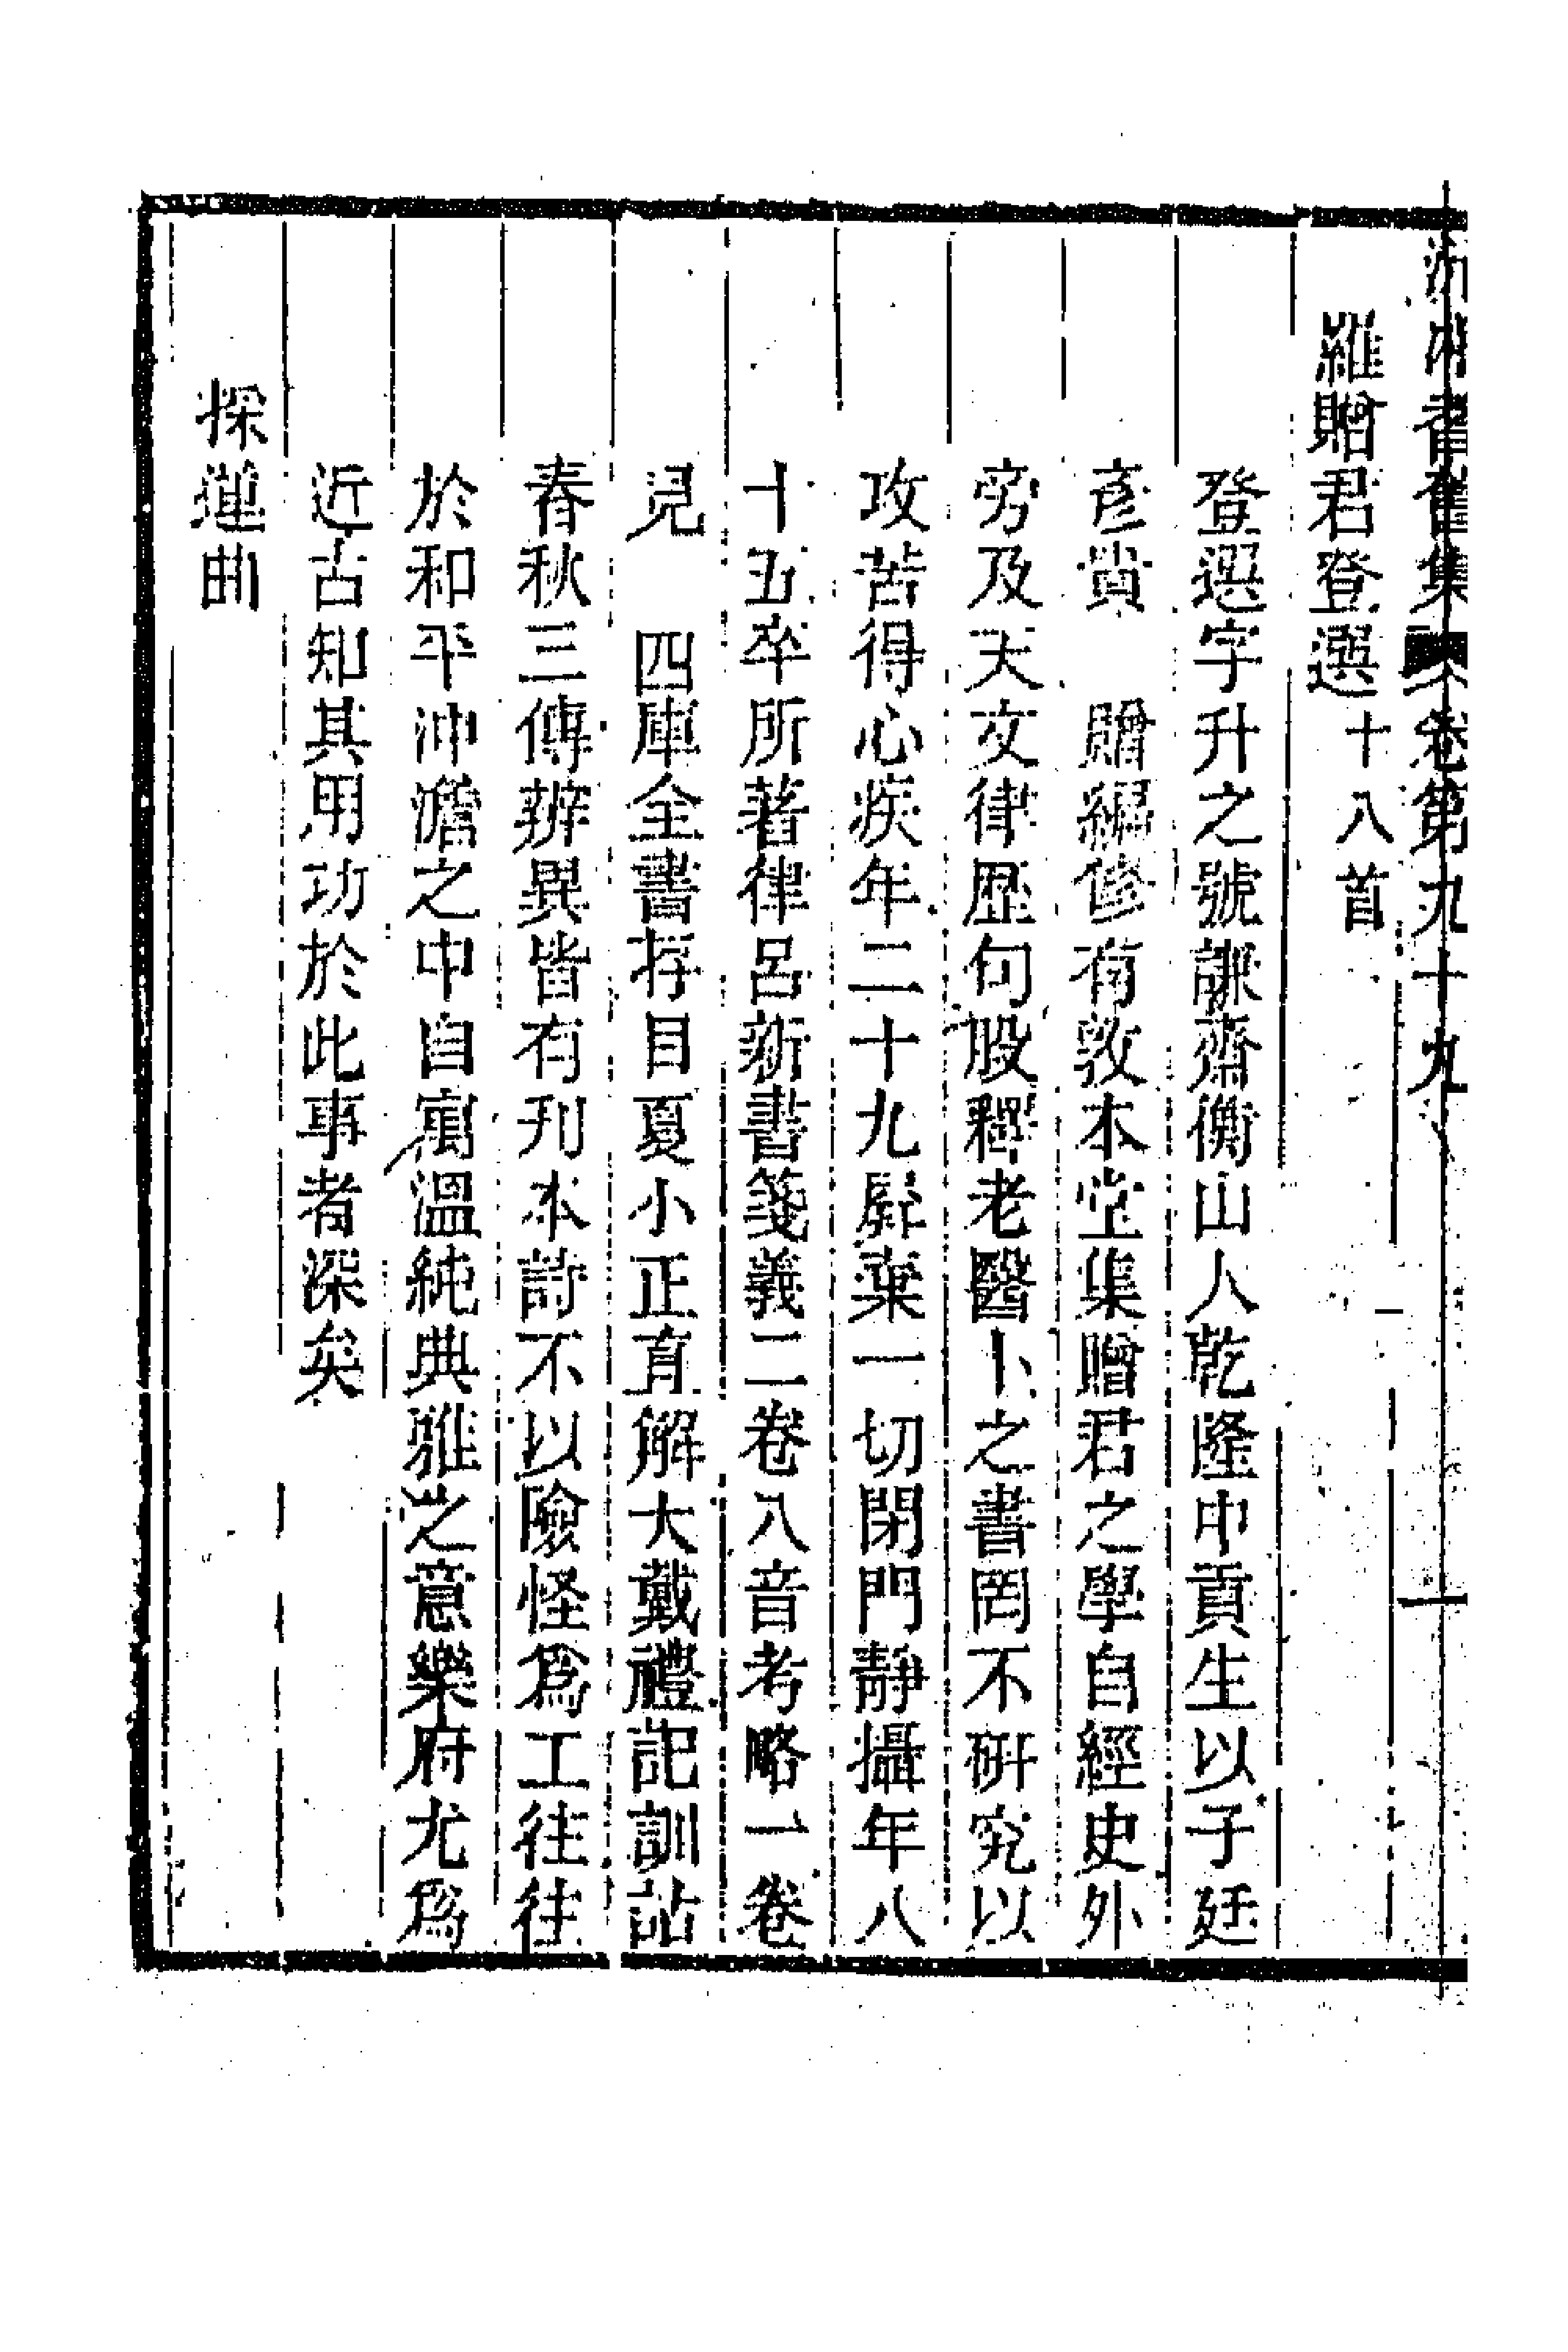 沅湘耆舊集卷第九十九 一
羅贈君登選十八首
登選字升之號謙齋衡山人乾隆中貢生以子廷
彥貴　贈編修有敦本堂集贈君之學自經史外
旁及天文律歷句股釋老醫卜之書罔不研究以
攻苦得心疾年二十九屏棄一切閉門靜攝年八
十五卒所著律呂新書箋義二卷八音考略一卷
見　四庫全書存目夏小正直解大戴禮記訓詁
春秋三傳辨異皆有刊本詩不以險怪爲工往往
於和平沖澹之中自寓溫純典雅之意樂府尤爲
近古知其用功於此事者深矣
採蓮曲